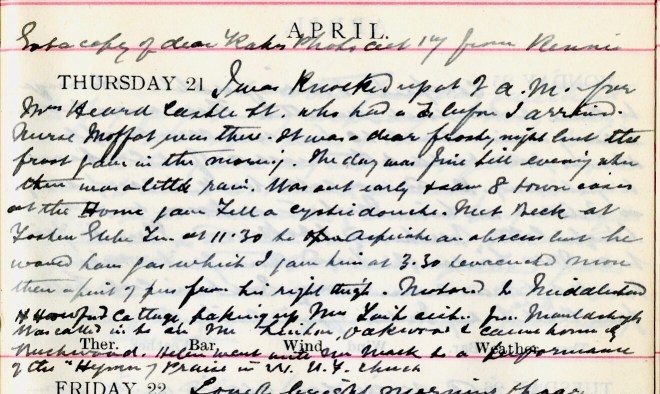 APRIL.
Got a copy of dear Kate's Photo from Rennie
THURSDAY 21 I was Knocked up at 2 a.m. for
Mrs Heard Castle St. who had a before I arrived.
Nurse Moffat was there. It was a clear frosty night but the
frost gave in the morning. The day was fine till evening when
there was a little rain. Was out early & saw 8 town cases
at the Home gave a cystic douche. Met Beck at
at 11.30 to Aspirate an abscess but he
would have gas which I gave him at 3.30 & evacuated more
then a pint of pus from his right thigh. Motored to Middleton
& Howford Cottage, taking up Mrs from
Was called in to see Mr Oakwood & came home by
Ther. Bar. Wind Weather
Birchwood. Helen went with Mrs Mack to a performance
of the "Hymn of Praise" in W. U. F. Church
FRIDAY 22 Lovely bright morning